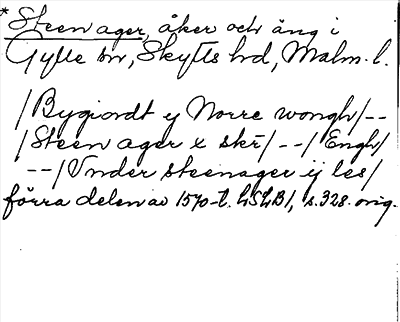 * Steen ager, åker och äng i
Gylle sn, Skytts hd, Malm. l.
/Bygiordt ij Norre wongh/--
/Steen ager x skr/--/Engh/
--/Vnder steenager ij les/
förra delen av 1570-t. LSLB1, s. 328. orig.